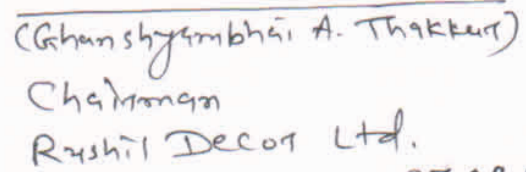 (Ghanshyambhai A. Thakkar)
Chairman
Rushil Decor Ltd.